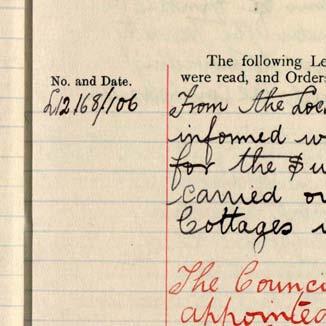 The following Le
No. and Date.
were read, and Order
L12168/106
From the Loc
informed w
for the Su
carried ou
Cottages
The Counci
appointed